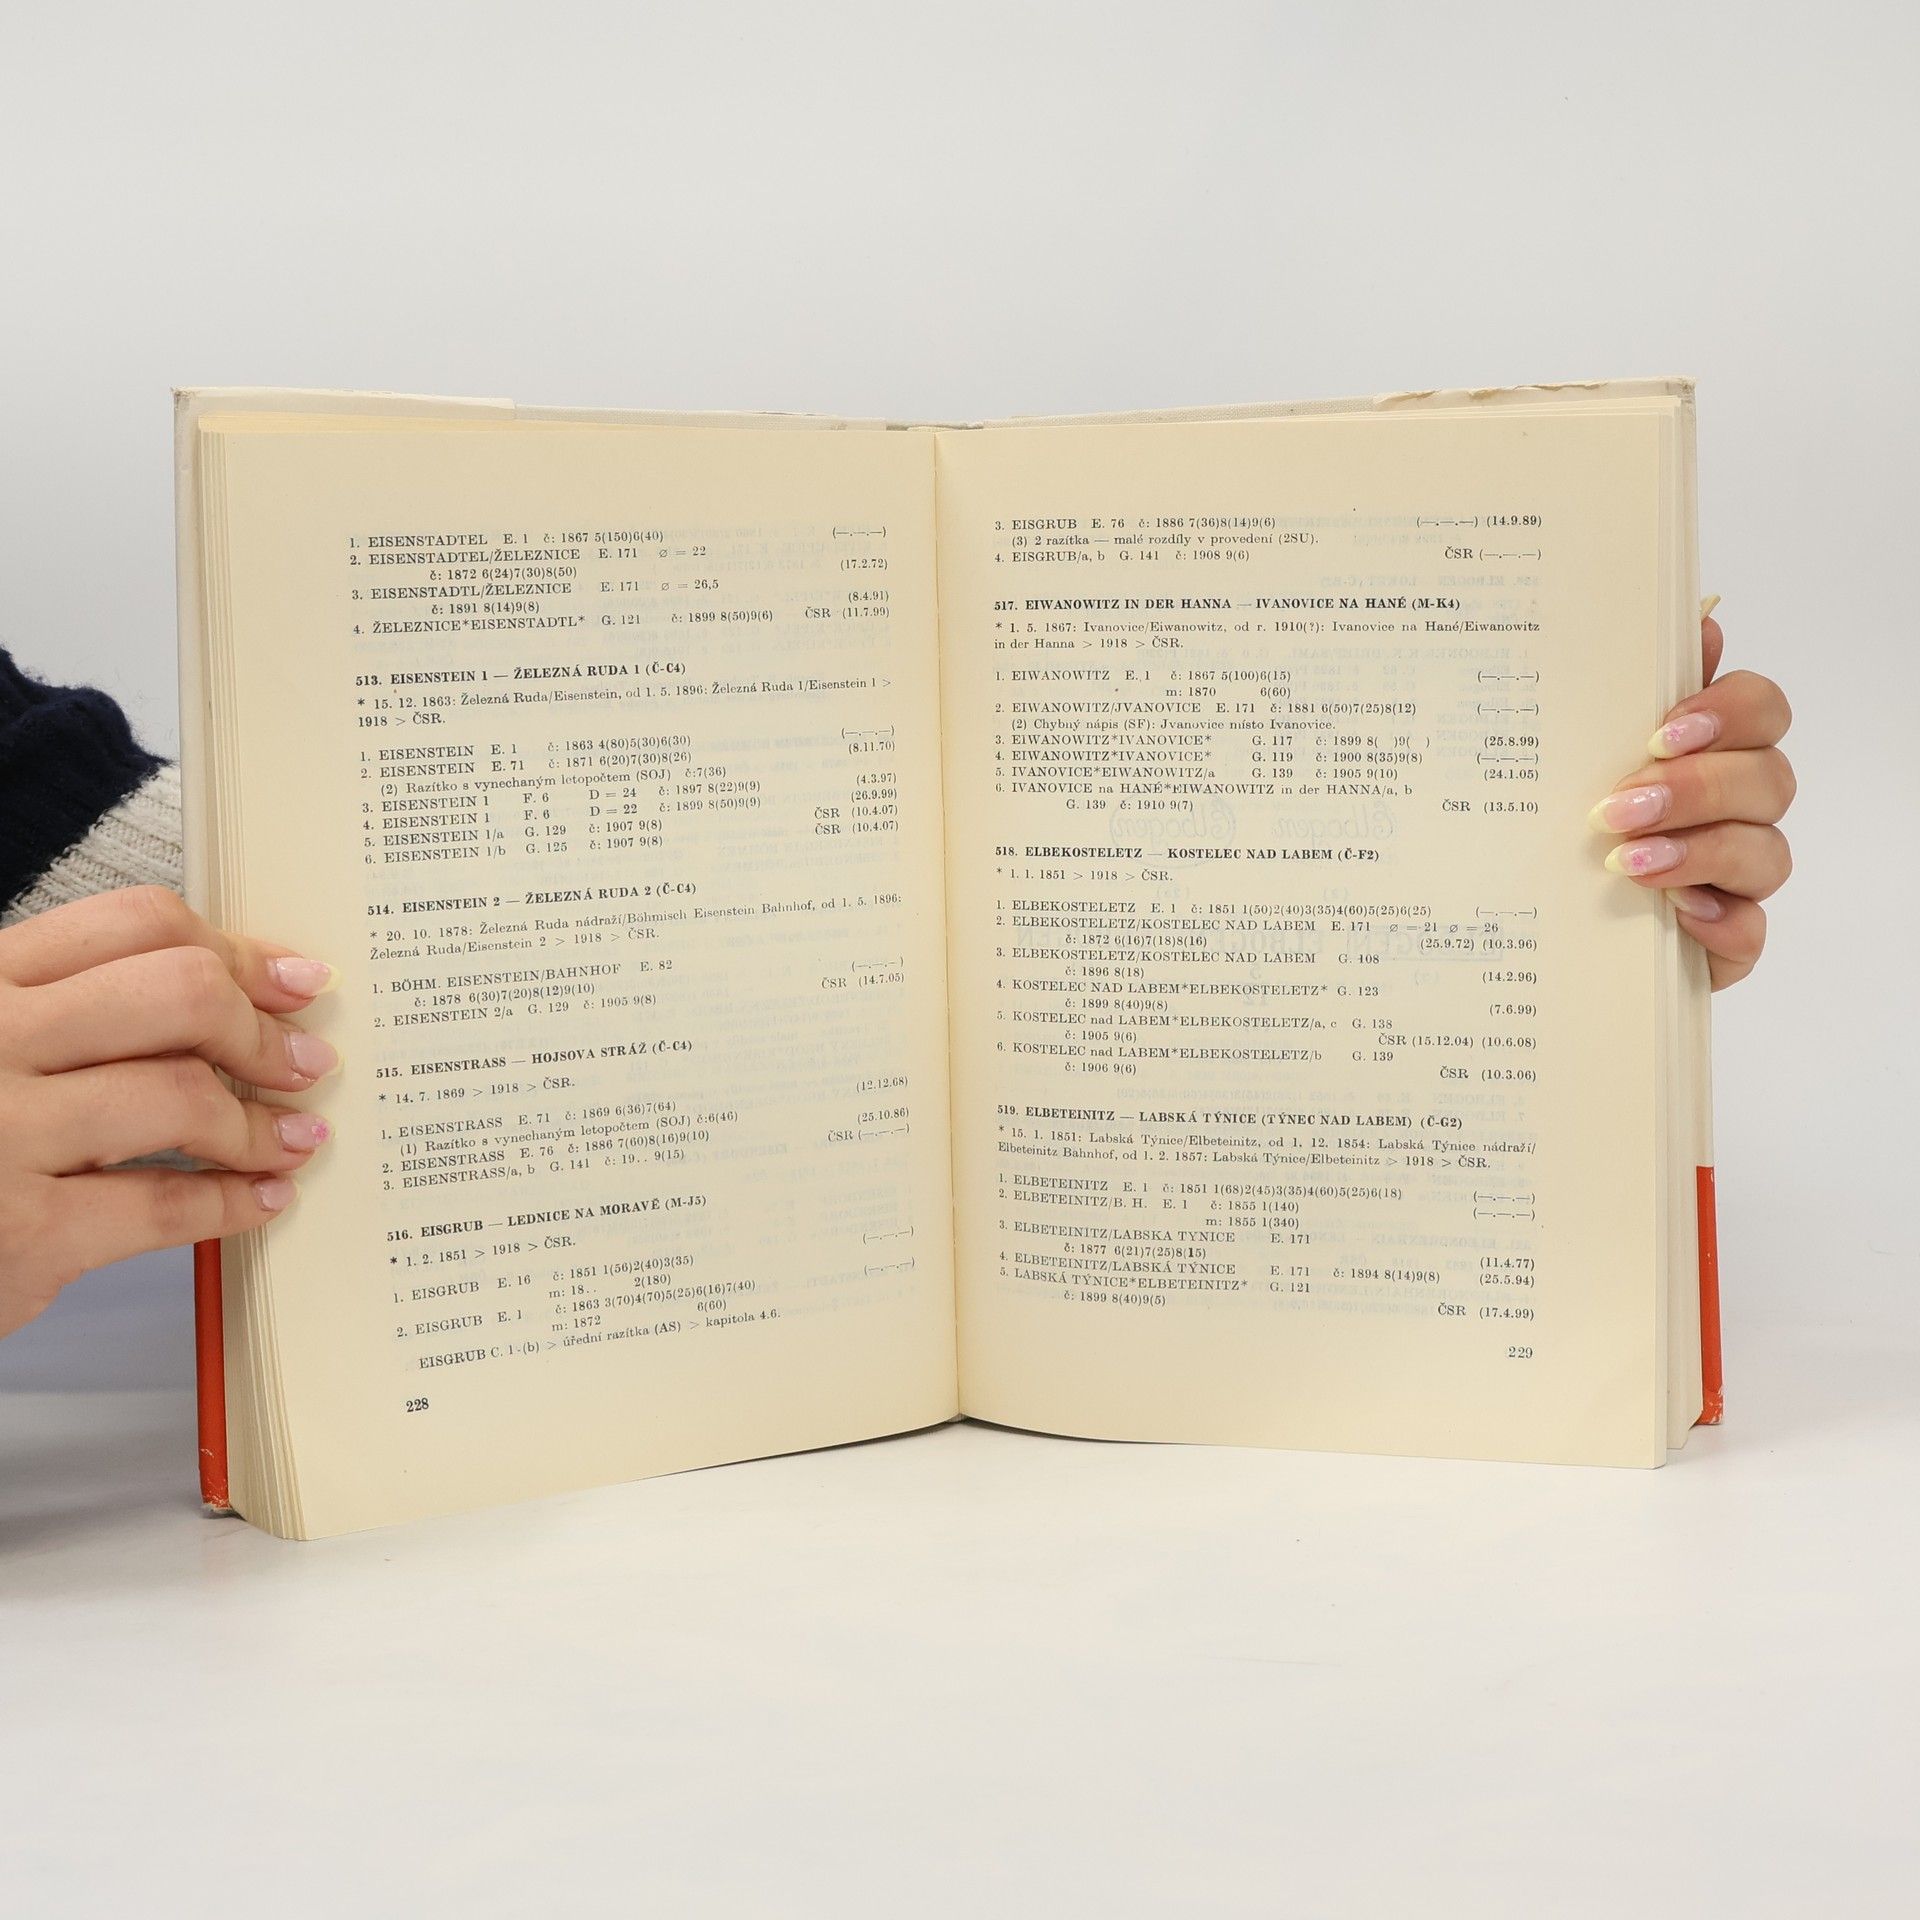 1. EISENSTADTEL E. 1 č: 1867 5(150)6(40) (—.—.—)
2. EISENSTADTEL/ŽELEZNICE E. 171 ⌀ = 22
č: 1872 6(24)7(30)8(50) (17.2.72)
3. EISENSTADTL/ŽELEZNICE E. 171 ⌀ = 26,5
č: 1891 8(14)9(8) (8.4.91)
4. ŽELEZNICE*EISENSTADTL* G. 121 č: 1899 8(50)9(6) ČSR (11.7.99)
513. EISENSTEIN 1 — ŽELEZNÁ RUDA 1 (Č-C4)
* 15. 12. 1863: Železná Ruda/Eisenstein, od 1. 5. 1896: Železná Ruda 1/Eisenstein 1 >
1918 > ČSR.
1. EISENSTEIN E. 1 č: 1863 4(80)5(30)6(30) (—.—.—)
2. EISENSTEIN E. 71 č: 1871 6(20)7(30)8(26) (8.11.70)
(2) Razítko s vynechaným letopočtem (SOJ) č:7(36)
3. EISENSTEIN 1 F. 6 D = 24 č: 1897 8(22)9(9) (4.3.97)
4. EISENSTEIN 1 F. 6 D = 22 č: 1899 8(50)9(9) (26.9.99)
5. EISENSTEIN 1/a G. 129 č: 1907 9(8) ČSR (10.4.07)
6. EISENSTEIN 1/b G. 125 č: 1907 9(8) ČSR (10.4.07)
514. EISENSTEIN 2 — ŽELEZNÁ RUDA 2 (Č-C4)
* 20. 10. 1878: Železná Ruda nádraží/Böhmisch Eisenstein Bahnhof, od 1. 5. 1896:
Železná Ruda/Eisenstein 2 > 1918 > ČSR.
1. BÖHM. EISENSTEIN/BAHNHOF E. 82
č: 1878 6(30)7(20)8(12)9(10) (—.—.—)
2. EISENSTEIN 2/a G. 129 č: 1905 9(8) ČSR (14.7.05)
515. EISENSTRASS — HOJSOVA STRÁŽ (Č-C4)
* 14. 7. 1869 > 1918 > ČSR.
1. EISENSTRASS E. 71 č: 1869 6(36)7(64) (12.12.68)
(1) Razítko s vynechaným letopočtem (SOJ) č:6(46)
2. EISENSTRASS E. 76 č: 1886 7(60)8(16)9(10) (25.10.86)
3. EISENSTRASS/a, b G. 141 č: 19.. 9(15) ČSR (—.—.—)
516. EISGRUB — LEDNICE NA MORAVĚ (M-J5)
* 1. 2. 1851 > 1918 > ČSR.
1. EISGRUB E. 16 č: 1851 1(56)2(40)3(35) (—.—.—)
m: 18.. 2(180)
2. EISGRUB E. 1 č: 1863 3(70)4(70)5(25)6(16)7(40) (—.—.—)
m: 1872 6(60)
EISGRUB C. 1-(b) > úřední razítka (AS) > kapitola 4.6.
228
3. EISGRUB E. 76 č: 1886 7(36)8(14)9(6) (—.—.—) (14.9.89)
(3) 2 razítka — malé rozdíly v provedení (2SU).
4. EISGRUB/a, b G. 141 č: 1908 9(6) ČSR (—.—.—)
517. EIWANOWITZ IN DER HANNA — IVANOVICE NA HANÉ (M-K4)
* 1. 5. 1867: Ivanovice/Eiwanowitz, od r. 1910(?): Ivanovice na Hané/Eiwanowitz
in der Hanna > 1918 > ČSR.
1. EIWANOWITZ E. 1 č: 1867 5(100)6(15) (—.—.—)
m: 1870 6(60)
2. EIWANOWITZ/JVANOVICE E. 171 č: 1881 6(50)7(25)8(12) (—.—.—)
(2) Chybný nápis (SF): Jvanovice místo Ivanovice.
3. EIWANOWITZ*IVANOVICE* G. 117 č: 1899 8( )9( ) (25.8.99)
4. EIWANOWITZ*IVANOVICE* G. 119 č: 1900 8(35)9(8) (—.—.—)
5. IVANOVICE*EIWANOWITZ/a G. 139 č: 1905 9(10) (24.1.05)
6. IVANOVICE na HANÉ*EIWANOWITZ in der HANNA/a, b
G. 139 č: 1910 9(7) ČSR (13.5.10)
518. ELBEKOSTELETZ — KOSTELEC NAD LABEM (Č-F2)
* 1. 1. 1851 > 1918 > ČSR.
1. ELBEKOSTELETZ E. 1 č: 1851 1(50)2(40)3(35)4(60)5(25)6(25) (—.—.—)
2. ELBEKOSTELETZ/KOSTELEC NAD LABEM E. 171 ⌀ = 21 ⌀ = 26
č: 1872 6(16)7(18)8(16) (25.9.72) (10.3.96)
3. ELBEKOSTELETZ/KOSTELEC NAD LABEM G. 108
č: 1896 8(18) (14.2.96)
4. KOSTELEC NAD LABEM*ELBEKOSTELETZ* G. 123
č: 1899 8(40)9(8) (7.6.99)
5. KOSTELEC nad LABEM*ELBEKOSTELETZ/a, c G. 138
č: 1905 9(6) ČSR (15.12.04) (10.6.08)
6. KOSTELEC nad LABEM*ELBEKOSTELETZ/b G. 139
č: 1906 9(6) ČSR (10.3.06)
519. ELBETEINITZ — LABSKÁ TÝNICE (TÝNEC NAD LABEM) (Č-G2)
* 15. 1. 1851: Labská Týnice/Elbeteinitz, od 1. 12. 1854: Labská Týnice nádraží/
Elbeteinitz Bahnhof, od 1. 2. 1857: Labská Týnice/Elbeteinitz > 1918 > ČSR.
1. ELBETEINITZ E. 1 č: 1851 1(68)2(45)3(35)4(60)5(25)6(18) (—.—.—)
2. ELBETEINITZ/B. H. E. 1 č: 1855 1(140) (—.—.—)
m: 1855 1(340)
3. ELBETEINITZ/LABSKA TYNICE E. 171
č: 1877 6(21)7(25)8(15) (11.4.77)
4. ELBETEINITZ/LABSKÁ TÝNICE E. 171 č: 1894 8(14)9(8) (25.5.94)
5. LABSKÁ TÝNICE*ELBETEINITZ* G. 121
č: 1899 8(40)9(5) ČSR (17.4.99)
229